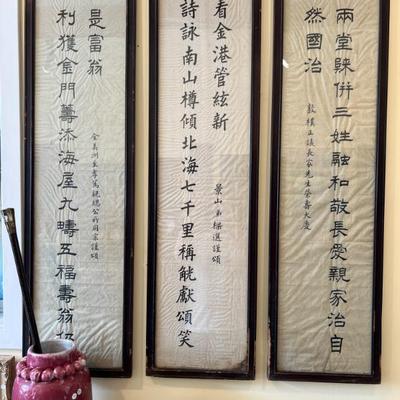 兩堂併三姓融和敬長愛親家治自
然國治
敦樸正議長宗先生榮壽大慶
詩詠南山樽傾北海七千里稱觥獻頌笑
看金港管絃新
景山弟梁選謹頌
利獲金門籌添海屋九疇五福壽翁仍
是富翁
金美洲至孝篤親總公所同宗謹頌